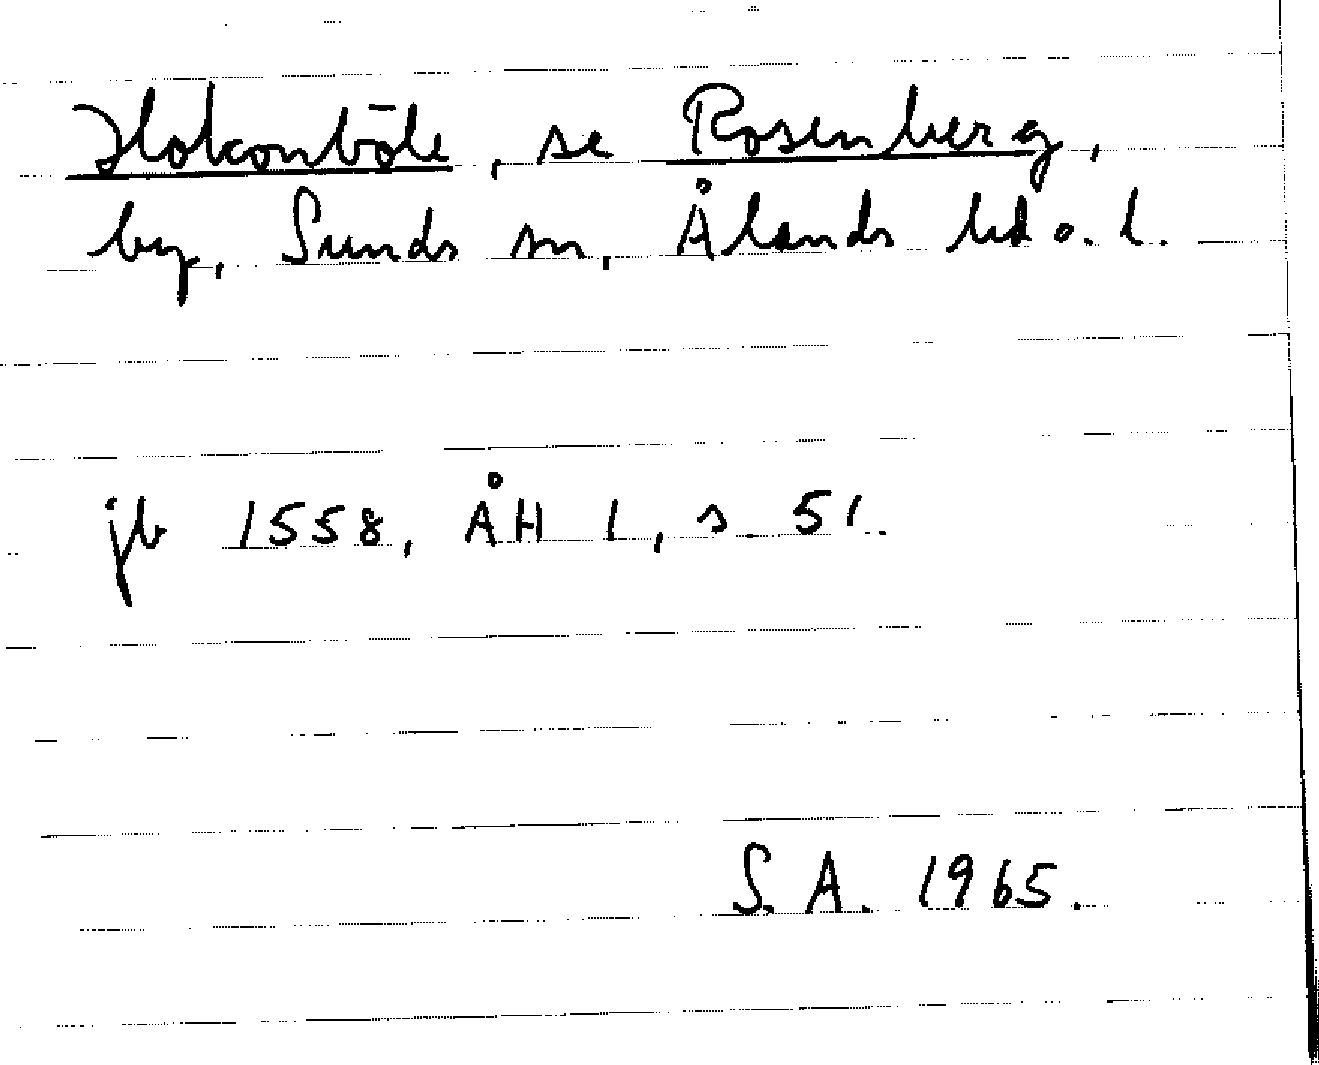 Hokonböle, se Rosenberg,
by, Sunds sn, Ålands hd o. l.
jb 1558, ÅH 1, s 51.
S. A. 1965.